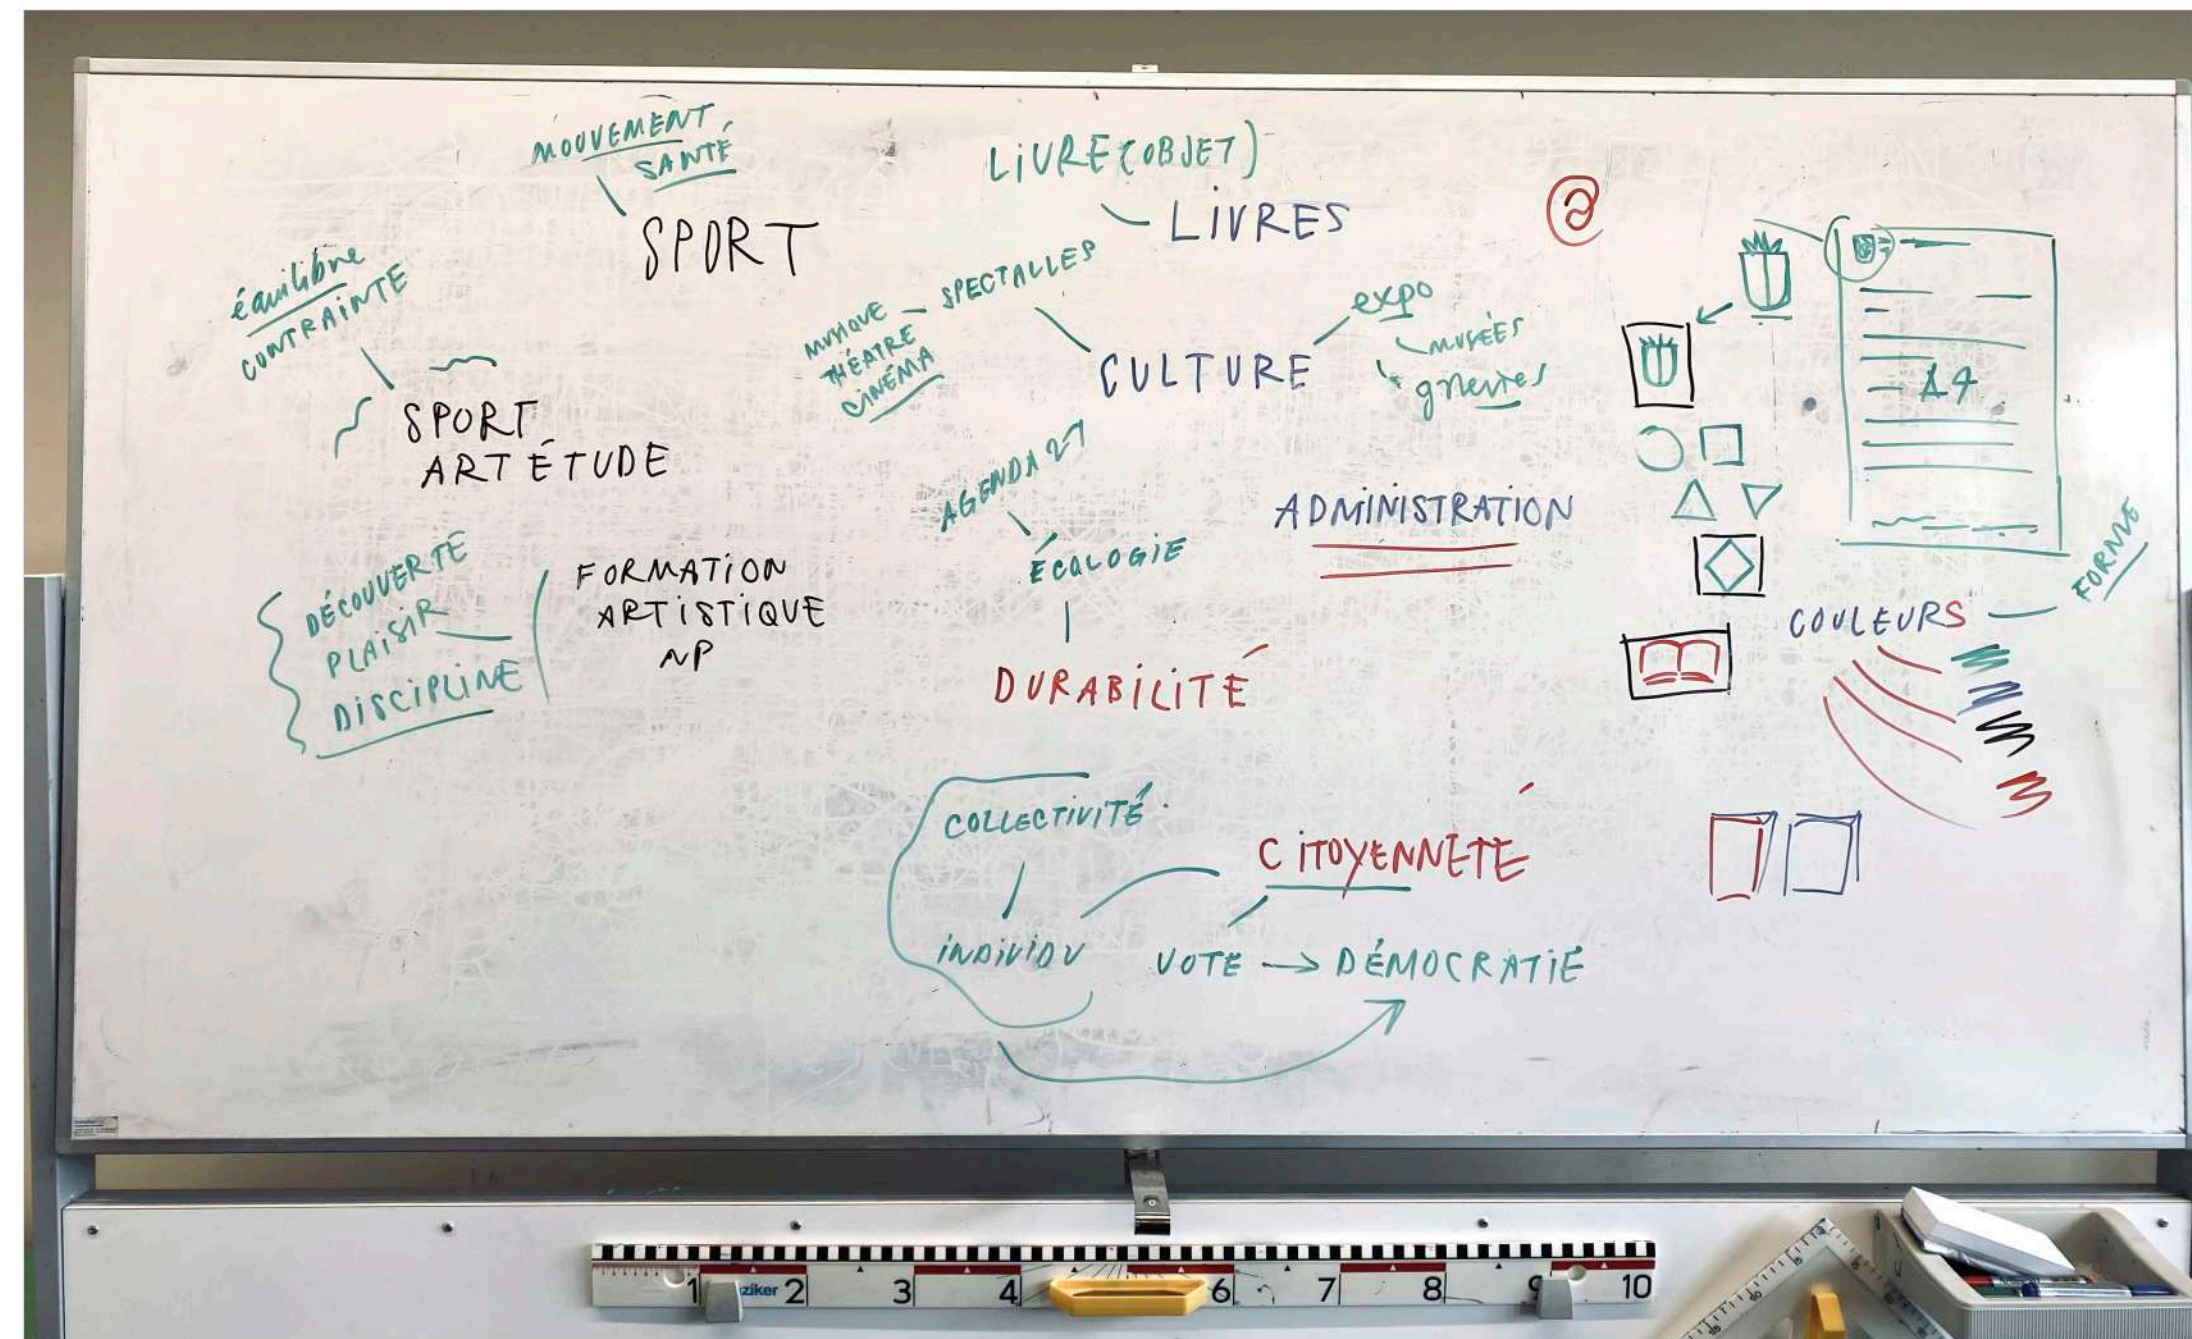 MOUVEMENT
SANTÉ
SPORT
équilibre
CONTRAINTE
SPORT
ART ÉTUDE
DÉCOUVERTE
PLAISIR
DISCIPLINE
FORMATION
ARTISTIQUE
NP
LIVRE (OBJET)
LIVRES
SPECTALLES
MUSIQUE
THÉATRE
CINÉMA
CULTURE
expo
MUSÉES
AGENDA 21
ÉCOLOGIE
DURABILITÉ
ADMINISTRATION
COLLECTIVITÉ
INDIVIDU
CITOYENNETÉ
VOTE → DÉMOCRATIE
A4
COULEURS
FORME
1 ziker 2 3 4 6 7 8 9 10